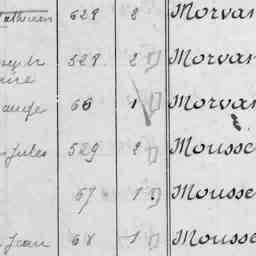 Mathurin 628 2 Morvan
Joseph 528 2 Morvan
66 1 Morvan
Jules 529 2 Mousse
67 1 Mousse
Jean 68 1 Mousse